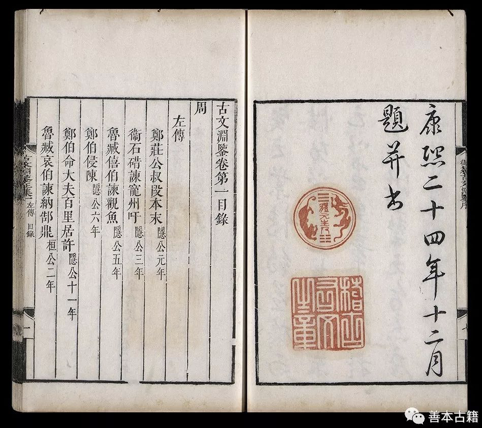 康熙二十四年十二月
題并書
稽古右文之章
古文淵鑒卷第一目錄
周
左傳
鄭莊公叔段本末 隱公元年
衛石碏諫寵州吁 隱公三年
魯臧僖伯諫觀魚 隱公五年
鄭伯侵陳 隱公六年
鄭伯命大夫百里居許 隱公十一年
魯臧哀伯諫納郜鼎 桓公二年
左傳 目錄
一
善本古籍